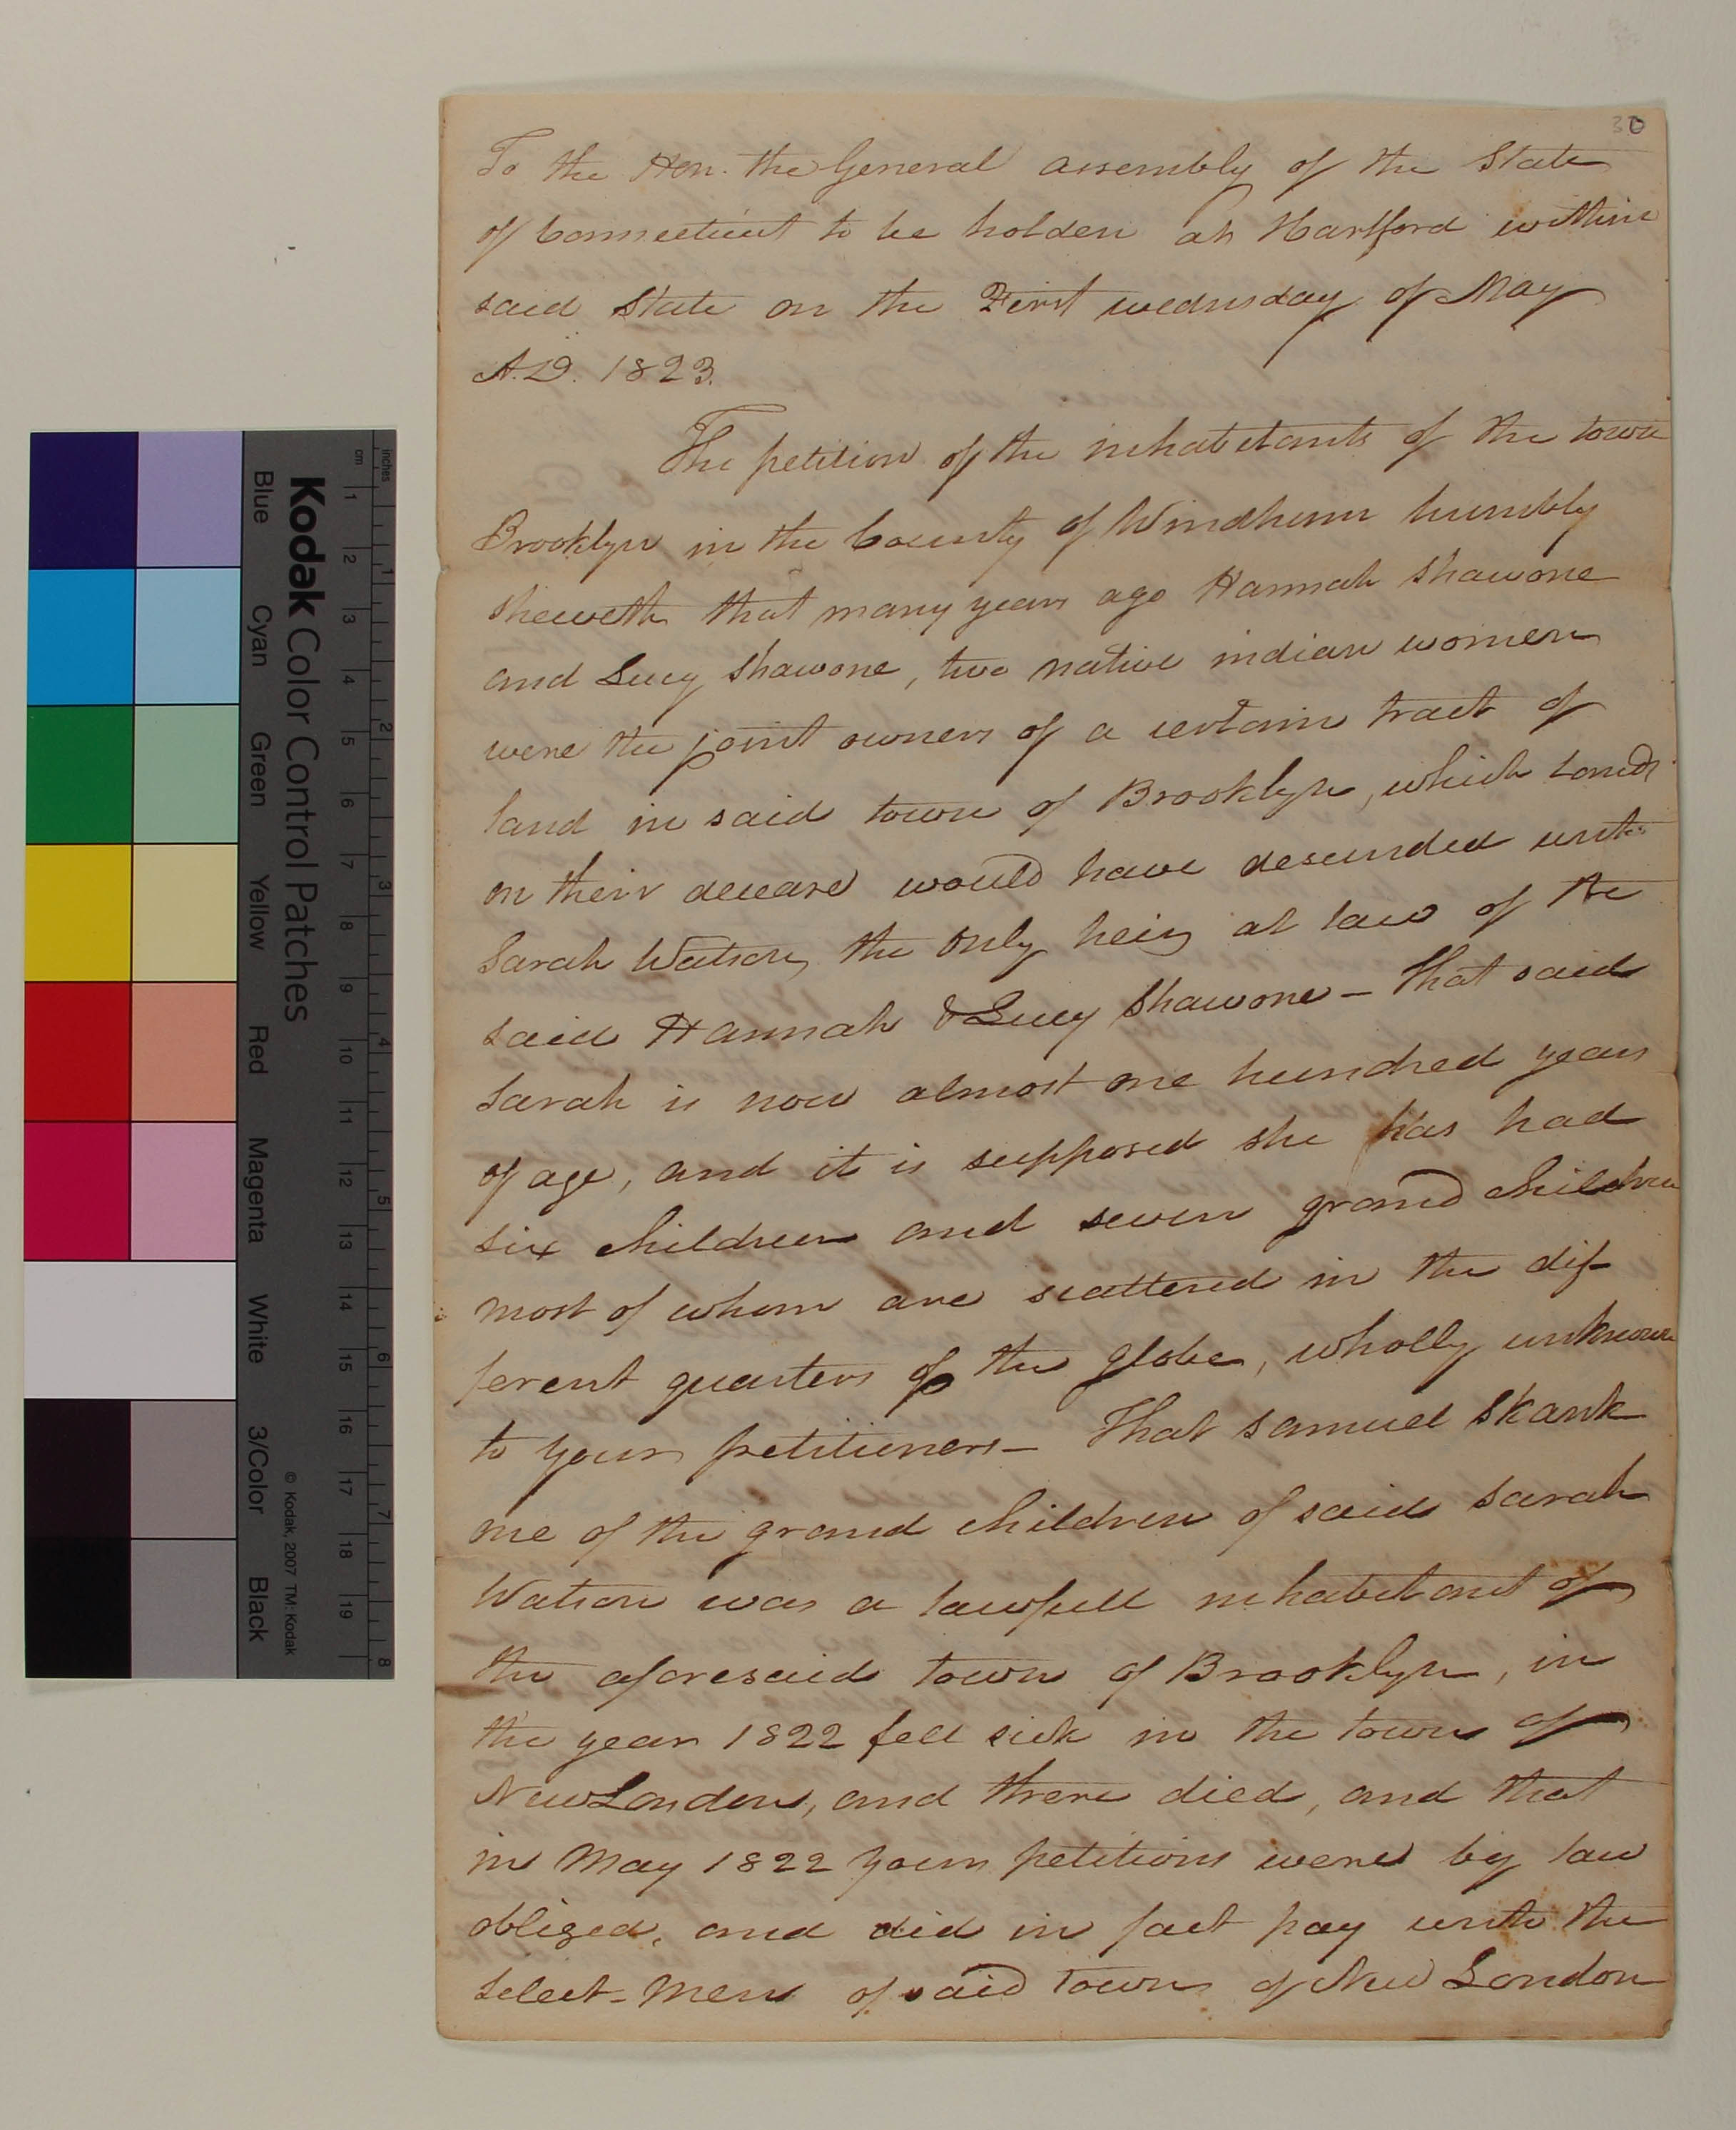 30
To the Hon. the General assembly of the State
of Connecticut to be holden at Hartford within
said State on the First wednsday of May
A.D. 1823.
The petition of the inhabitants of the town
Brooklyn in the County of Windham humbly
sheweth that many years ago Hannah Shawone
and Lucy Shawone, two native indian women
were the joint owners of a certain tract of
land in said town of Brooklyn, which land
on their decease would have descended unto
Sarah Watson, the only heir at law of the
said Hannah & Lucy Shawone - That said
Sarah is now almost one hundred years
of age, and it is supposed she has had
six children and seven grand children
most of whom are scattered in the dif-
ferent quarters of the globe, wholly unknown
to your petitioners - That Samuel Skank
one of the grand children of said Sarah
Watson was a lawfull inhabitant of
the aforesaid town of Brooklyn, in
the year 1822 fell sick in the town of
New London, and there died, and that
in May 1822 your petitions were by law
obliged, and did in fact pay unto the
Select-Men of said town of New London
Kodak Color Control Patches
Blue Cyan Green Yellow Red Magenta White 3/Color Black
© Kodak, 2007 TM: Kodak
cm 1 2 3 4 5 6 7 8 9 10 11 12 13 14 15 16 17 18 19
inches 1 2 3 4 5 6 7 8